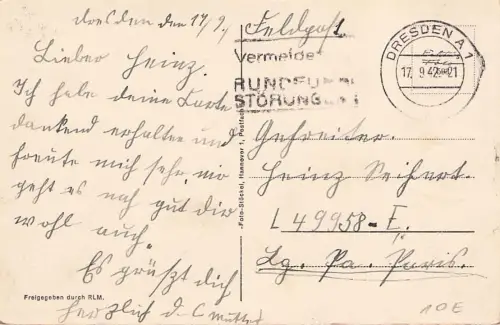 Dresden den 17/9.
Lieber Heinz.
Ich habe deine Karte
dankend erhalten und
freute mich sehr, mir
geht es noch gut dir
wohl auch.
Es grüßt dich
herzlich d. Mutter
Freigegeben durch RLM.
-Foto-Stödel, Hannover 1, Postfach
Feldpost.
Vermeidet
RUNDFUNK
STÖRUNGEN
DRESDEN A 1
17. 9 42 -21
Gefreiter.
Heinz Seifert.
L 49958-E.
Lg. Pa. Paris.
10E